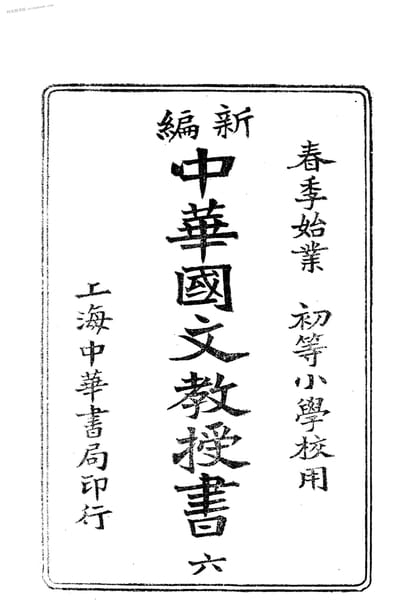 春季始業　初等小學校用
新編
中華國文教授書
六
上海中華書局印行